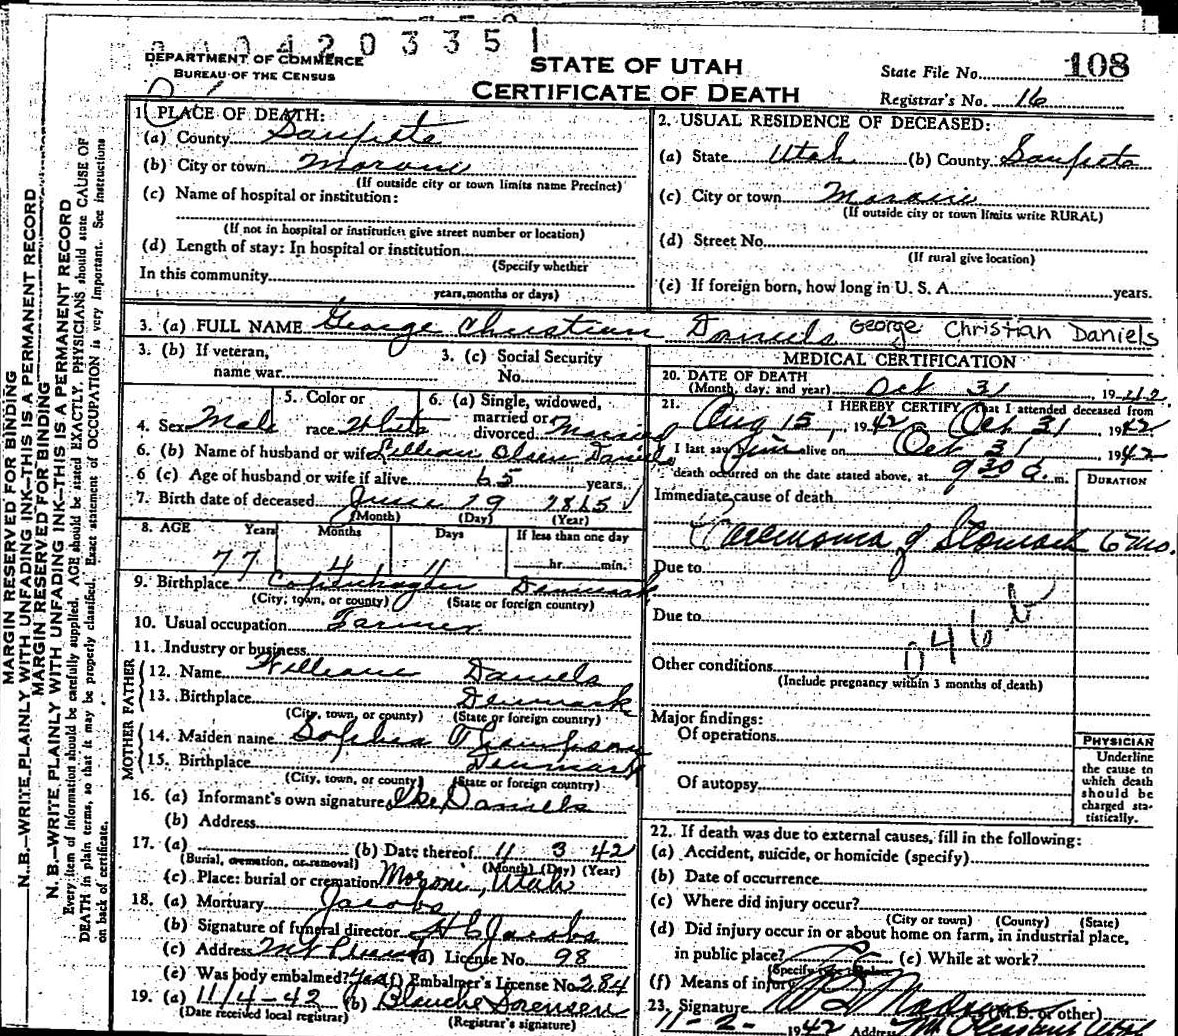 0004203351
DEPARTMENT OF COMMERCE
BUREAU OF THE CENSUS
STATE OF UTAH
CERTIFICATE OF DEATH
State File No. 108
Registrar's No. 16
MARGIN RESERVED FOR BINDING
N.B.—WRITE PLAINLY WITH UNFADING INK—THIS IS A PERMANENT RECORD
MARGIN RESERVED FOR BINDING
N. B.—WRITE PLAINLY WITH UNFADING INK—THIS IS A PERMANENT RECORD
Every item of information should be carefully supplied. AGE should be stated EXACTLY. PHYSICIANS should state CAUSE OF
DEATH in plain terms, so that it may be properly classified. Exact statement of OCCUPATION is very important. See instructions
on back of certificate.
1. PLACE OF DEATH:
(a) County Sanpete
(b) City or town Moroni
(If outside city or town limits name Precinct)
(c) Name of hospital or institution:
(If not in hospital or institution give street number or location)
(d) Length of stay: In hospital or institution
(Specify whether
In this community
years, months or days)
2. USUAL RESIDENCE OF DECEASED:
(a) State Utah (b) County Sanpete
(c) City or town Moroni
(If outside city or town limits write RURAL)
(d) Street No.
(If rural give location)
(e) If foreign born, how long in U. S. A. years.
3. (a) FULL NAME George Christian Daniels George Christian Daniels
3. (b) If veteran,
name war
3. (c) Social Security
No.
4. Sex Male
5. Color or
race White
6. (a) Single, widowed,
married or
divorced Married
6. (b) Name of husband or wife Lillian Olsen Daniels
6 (c) Age of husband or wife if alive 65 years.
7. Birth date of deceased June 19 1865
(Month) (Day) (Year)
8. AGE Years Months Days If less than one day
77 4 11 hr. min.
9. Birthplace Copenhagen Denmark
(City, town, or county) (State or foreign country)
10. Usual occupation Farmer
11. Industry or business
FATHER
12. Name William Daniels
13. Birthplace Denmark
(City, town, or county) (State or foreign country)
MOTHER
14. Maiden name Sophia Thompson
15. Birthplace Denmark
(City, town, or county) (State or foreign country)
16. (a) Informant's own signature Ike Daniels
(b) Address
17. (a) (b) Date thereof 11 3 42
(Burial, cremation, or removal) (Month) (Day) (Year)
(c) Place: burial or cremation Moroni, Utah
18. (a) Mortuary Jacobs
(b) Signature of funeral director H C Jacobs
(c) Address Mt Pleasant (d) License No. 98
(e) Was body embalmed? Yes (f) Embalmer's License No. 284
19. (a) 11/4-42 (b) Blanche Sorensen
(Date received local registrar) (Registrar's signature)
MEDICAL CERTIFICATION
20. DATE OF DEATH
(Month, day, and year) Oct 31 1942
21. I HEREBY CERTIFY, That I attended deceased from
Aug 15, 1942 Oct 31 1942
I last saw him alive on Oct 31 1942
death occurred on the date stated above, at 9 30 a. m.
DURATION
Immediate cause of death
Carcinoma of Stomach 6 mo.
Due to
Due to
046 b
Other conditions
(Include pregnancy within 3 months of death)
Major findings:
Of operations
Of autopsy
PHYSICIAN
Underline
the cause to
which death
should be
charged sta-
tistically.
22. If death was due to external causes, fill in the following:
(a) Accident, suicide, or homicide (specify)
(b) Date of occurrence
(c) Where did injury occur?
(City or town) (County) (State)
(d) Did injury occur in or about home on farm, in industrial place,
in public place? (e) While at work?
(Specify type of place)
(f) Means of injury
23. Signature (M.D. or other)
11-2- 1942 Address Mt Pleasant Utah